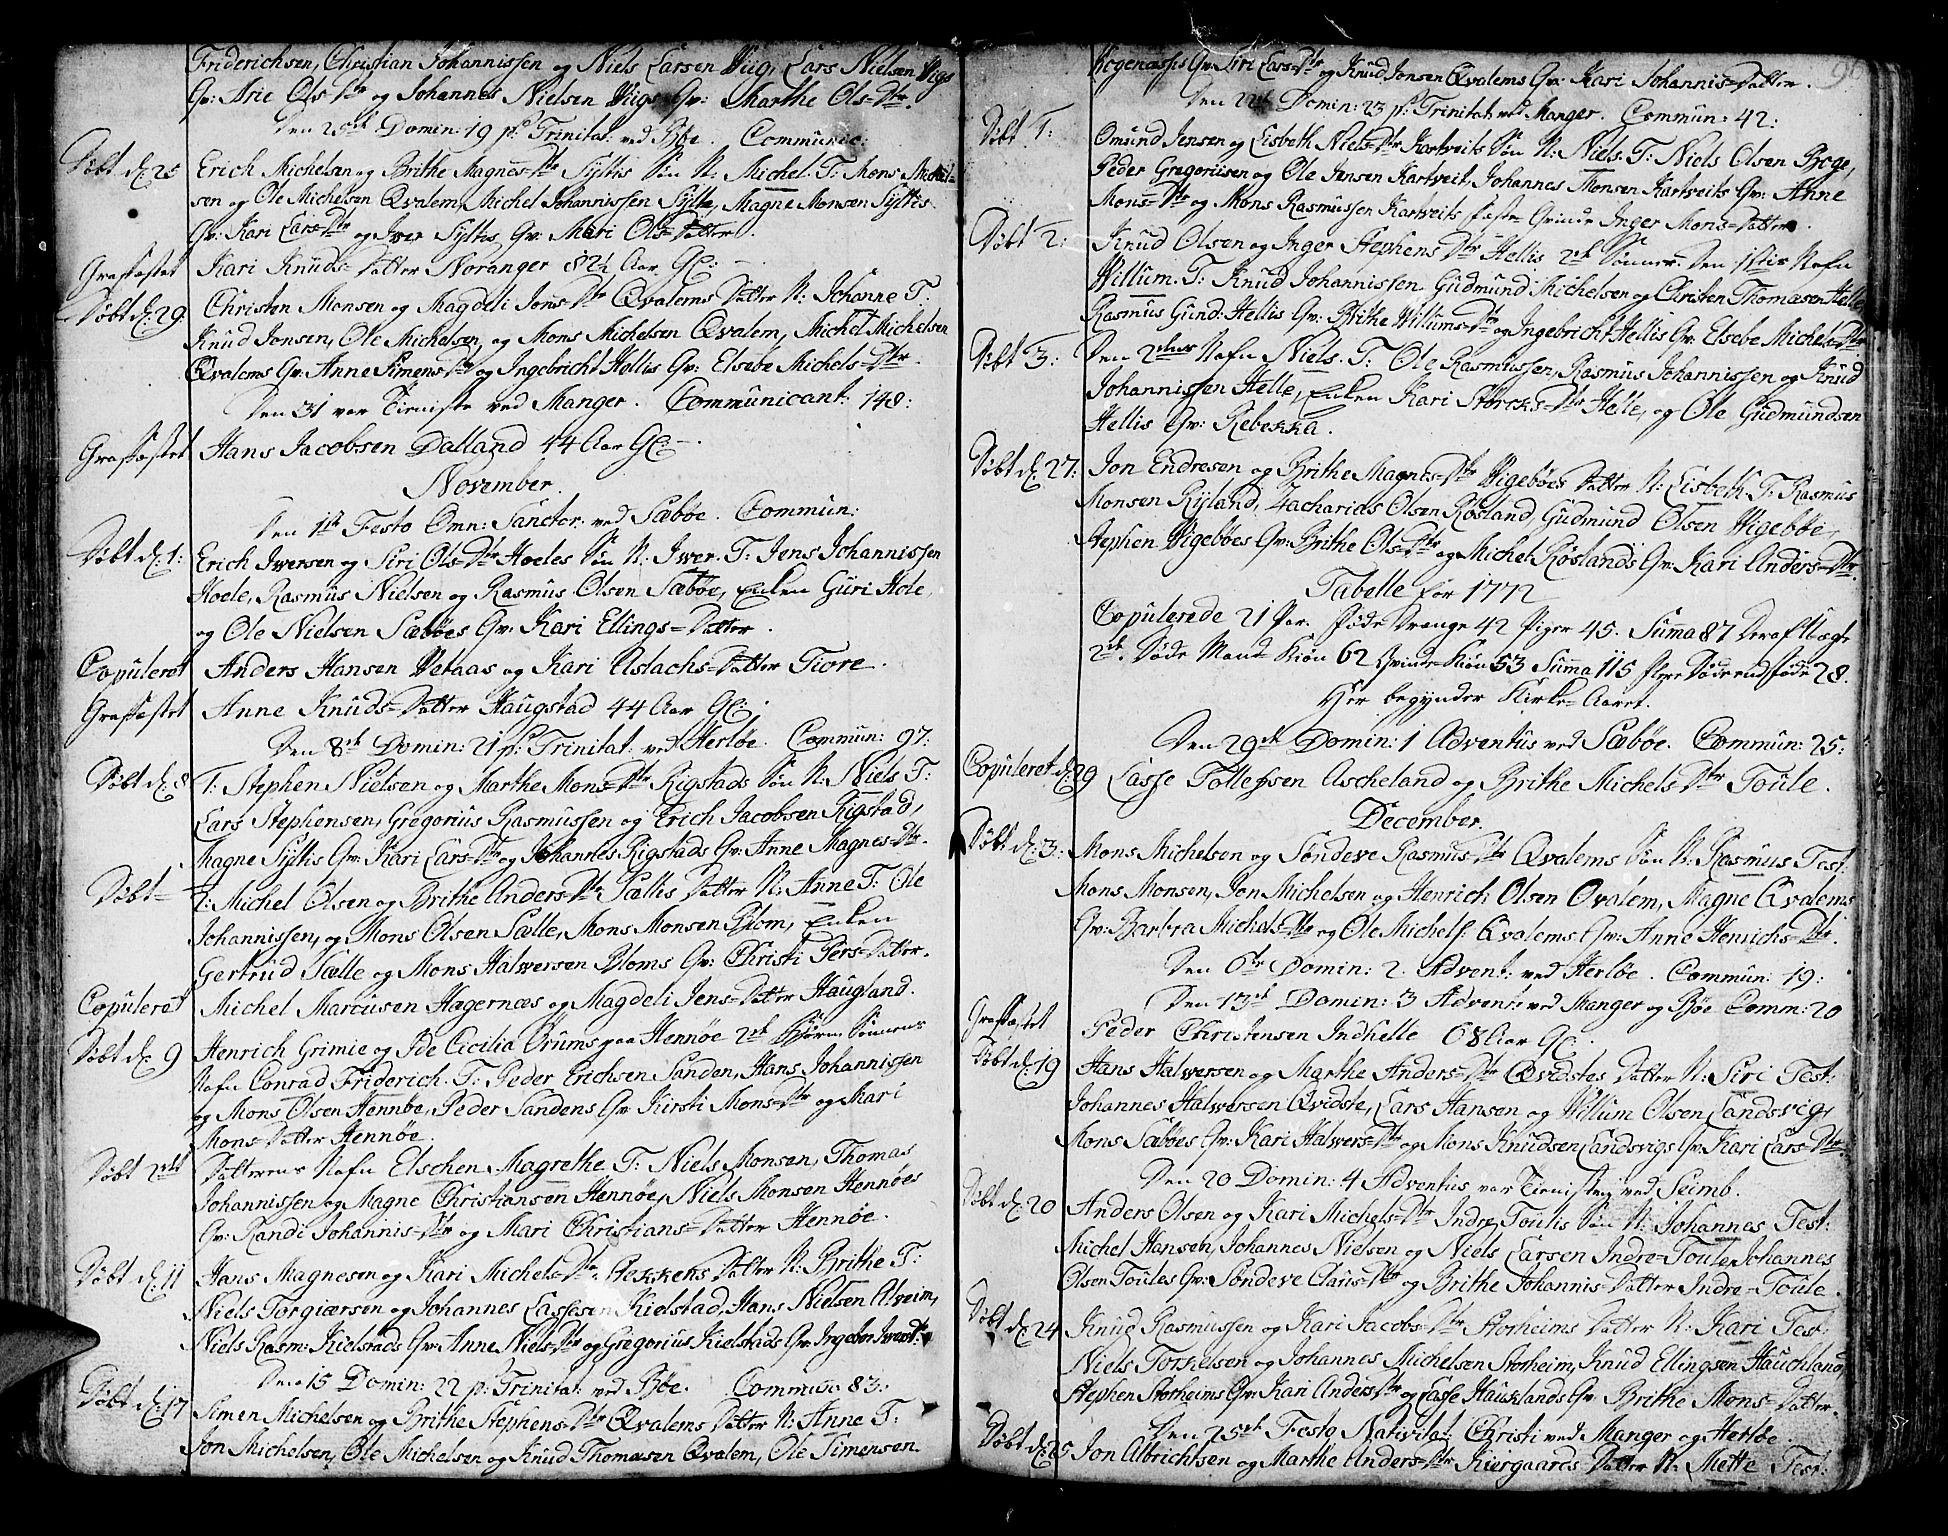 Friderichsen, Christian Johannissen og Niels Larsen Viig, Lars Nielsen Vigs
Gv: Arie Ols=Dtr og Johannes Nielsen Viigs Gv: Marthe Ols=Dtr.
Den 25de Domin: 19 p: Trinitat: ved Bøe. Communic:
Døbt d: 25 Erich Michelsen og Brithe Magnes=Dtr Syltes Søn N: Michel T: Mons Michel-
sen og Ole Michelsen Qvalem, Michel Johannissen Sylte, Magne Monsen Syltes
Gv: Kari Lars=Dtr og Iver Syltes Gv: Mari Ols=Datter.
Grafæstet Kari Knuds=Datter Noranger 82½ Aar Gl:
Døbt d: 29. Christen Monsen og Magdeli Jons=Dtr Qvalems Datter N: Johanne T:
Knud Jonsen, Ole Michelsen, og Mons Michelsen Qvalem, Michel Michelsen
Qvalems Gv: Anne Simens=Dtr og Ingebricht Hellis Gv: Elsebe Michels=Dtr.
Den 31 var Tieniste ved Manger. Communicant: 148:
Grafæstet Hans Jacobsen Dalland 44 Aar Gl:
November.
Den 1ste Festo Omn: Sanctor: ved Sæbøe. Commun:
Døbt d: 1: Erich Iversen og Siri Ols=Dtr Hoeles Søn N: Iver. T: Jens Johannissen
Hoele, Rasmus Nielsen og Rasmus Olsen Sæbøe, Enken Guri Hole,
og Ole Nielsen Sæbøes Gv: Kari Ellings=Datter.
Copuleret Anders Hansen Vetaas og Kari Elstachs=Datter Fiore.
Grafæstet Anne Knuds=Datter Haugstad 44 Aar Gl:
Den 8de Domin: 21 p: Trinitat: ved Herløe. Commun: 97:
Døbt d: 8 1: Stephen Nielsen og Marthe Mons=Dtr Rigstads Søn N: Niels T:
Lars Stephensen, Gregorius Rasmussen og Erich Jacobsen Rigstad,
Magne Syltes Gv: Kari Lars=Dtr og Johannes Rigstads Gv: Anne Magnes=Dtr.
Døbt= 2: Michel Olsen og Brithe Anders=Dtr Sælles Datter N: Anne T: Ole
Johannissen, og Mons Olsen Sælle, Mons Monsen Blom, Enken
Gertrud Sælle og Mons Halversen Bloms Gv: Christi Pers=Datter.
Copuleret Michel Marcusen Hagernæs og Magdeli Jens=Datter Haugland.
Døbt d: 9 Henrich Grimie og Ide Cicilia Ørums paa Hennøe 2de Børn Sønnens
Nafn Conrad Friderich. T: Peder Erichsen Sanden, Hans Johannissen
og Mons Olsen Hennøe, Peder Sandens Gv: Kirsti Mons=Dtr og Mari
Mons=Datter Hennøe.
Døbt Datterens Nafn Elschen Magrethe T: Niels Monsen, Thomas
Johannissen og Magne Christiansen Hennøe, Niels Monsen Hennøes
Gv: Randi Johannis=Dtr og Mari Christians=Datter Hennøe.
Døbt d: 11 Hans Magnesen og Kari Michels=Dtr Datter N: Brithe T:
Niels Torgiersen og Johannes Lassesen Kielstad, Hans Nielsen Alveim,
Niels Rasm: Kielstads Gv: Anne Niels=Dtr og Gregorius Kielstads Gv: Ingebor Ivers=Dtr
Den 15 Domin: 22 p: Trinitat: ved Bøe. Commun: 83:
Døbt d: 17 Simen Michelsen og Brithe Stephens=Dtr Qvalems Datter N: Anne T:
Jon Michelsen, Ole Michelsen og Knud Thomasen Qvalem, Ole Simensen
Hogenæsses Gv: Siri Lars=Dtr og Knud Jensen Qvalems Gv: Kari Johannis=Datter.
Den 22de Domin: 23 p: Trinitat: ved Manger. Commun: 42:
Døbt 1: Omund Jensen og Lisbeth Niels=Dtr Kartveits Søn N: Niels. T: Niels Olsen Boge,
Peder Gregoriisen og Ole Jensen Kartveit, Johannes Monsen Kartveits Gv: Anne
Mons=Dtr og Mons Rasmussen Kartveits Fæste Qvinde Inger Mons=Datter.
Døbt 2: Knud Olsen og Inger Stephens=Dtr Hellis 2de Sønner. Den 1stes Nafn
Willum. T: Knud Johannissen, Gudmund Michelsen og Christen Thomasen Helle
Rasmus Gund: Hellis Gv: Brithe Willums=Dtr og Ingebricht Hellis Gv: Elsebe Michels=Dtr
Døbt 3: Den 2dens Nafn Niels. T: Ole Rasmussen, Rasmus Johannissen og Knud
Johannissen Helle, Enken Kari Størcks=Dtr Helle, og Ole Gudmundsen
Hellis Gv: Rebekka.
Døbt d: 27: Jon Endresen og Brithe Magnes=Dtr Vigebøes Datter N: Lisbeth. T: Rasmus
Monsen Ryland, Zacharias Olsen Røsland, Gudmund Olsen Vigebøe,
Stephen Vigebøes Gv: Brithe Ols=Dtr og Michel Røslands Gv: Kari Anders=Dtr.
Tabelle for 1772
Copulerede 21 Par. Føde Drenge 42 Piger 45. Summa 87 Deraf Uægte
2de. Døde Mand=Kiøn 62 Qvinde=Kiøn 53 Summa 115 Flere Døde end fødde 28.
Her begynder Kirke=Aaret.
Den 29de Domin: 1 Adventus ved Sæbøe. Commun: 25:
Copuleret d: 29 Lasse Tollefsen Ascheland og Brithe Michels=Dtr Toule.
December.
Døbt d: 3: Mons Michelsen og Søndeve Rasmus=Dtr Qvalems Søn N: Rasmus Test:
Mons Monsen, Jon Michelsen og Henrich Olsen Qvalem, Magne Qvalems
Gv: Barbra Michels=Dtr og Ole Michels: Qvalems Gv: Anne Henrichs=Dtr.
Den 6te Domin: 2. Advent: ved Herløe. Commun: 19:
Den 13de Domin: 3 Advent: ved Manger og Bøe Comm: 20
Grafæstet Peder Christensen Indhelle 68 Aar Gl:
Døbt d: 19 Hans Halversen og Marthe Anders=Dtr Qvidstes Datter N: Siri Test:
Johannes Halversen Qvidste, Lars Hansen og Willum Olsen Landsvig,
Mons Sæbøes Gv: Kari Halvers=Dtr og Mons Knudsen Landsvigs Gv: Kari Lars=Dtr
Den 20 Domin: 4 Adventus var Tieniste ved Seimb.
Døbt d: 20 Anders Olsen og Kari Michels=Dtr Indre Toules Søn N: Johannes Test:
Michel Hansen, Johannes Nielsen og Niels Larsen Indre=Toule, Johannes
Olsen Toules Gv: Søndeve Claus=Dtr og Brithe Johannis=Datter Indre=Toule.
Døbt d: 24 Knud Rasmussen og Kari Jacobs=Dtr Storheims Datter N: Kari Test:
Niels Torkelsen og Johannes Michelsen Storheim, Knud Ellingsen Hauchland,
Stephen Storheims Gv: Kari Anders=Dtr og Lasse Haucklands Gv: Brithe Mons=Datter.
Den 25de Festo Nativitat: Christi ved Manger og Herløe.
Døbt d: 25 Jon Albrichtsen og Marthe Anders=Dtr Kiergaards Datter N: Mette Test: